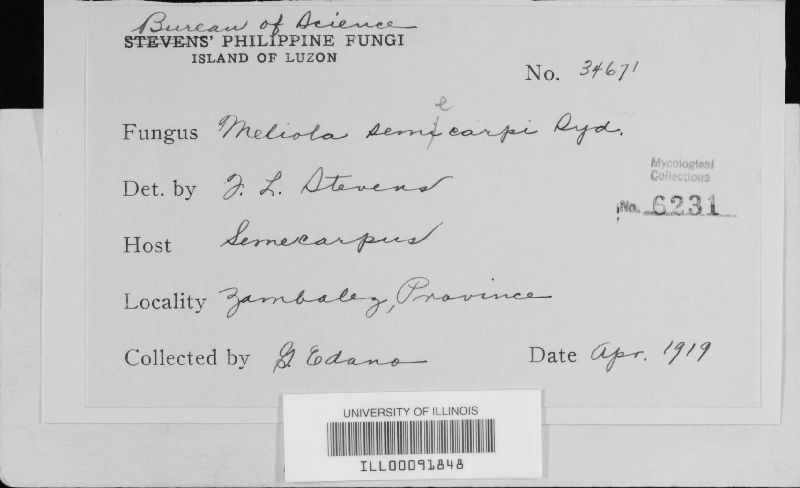 Bureau of Science
STEVENS' PHILIPPINE FUNGI
ISLAND OF LUZON
No. 34671
Fungus Meliola semecarpi Syd.
Det. by F. L. Stevens
Mycological
Collections
No. 6231
Host Semecarpus
Locality Zambalez, Province
Collected by G. Edano
Date Apr. 1919
UNIVERSITY OF ILLINOIS
ILL00091848